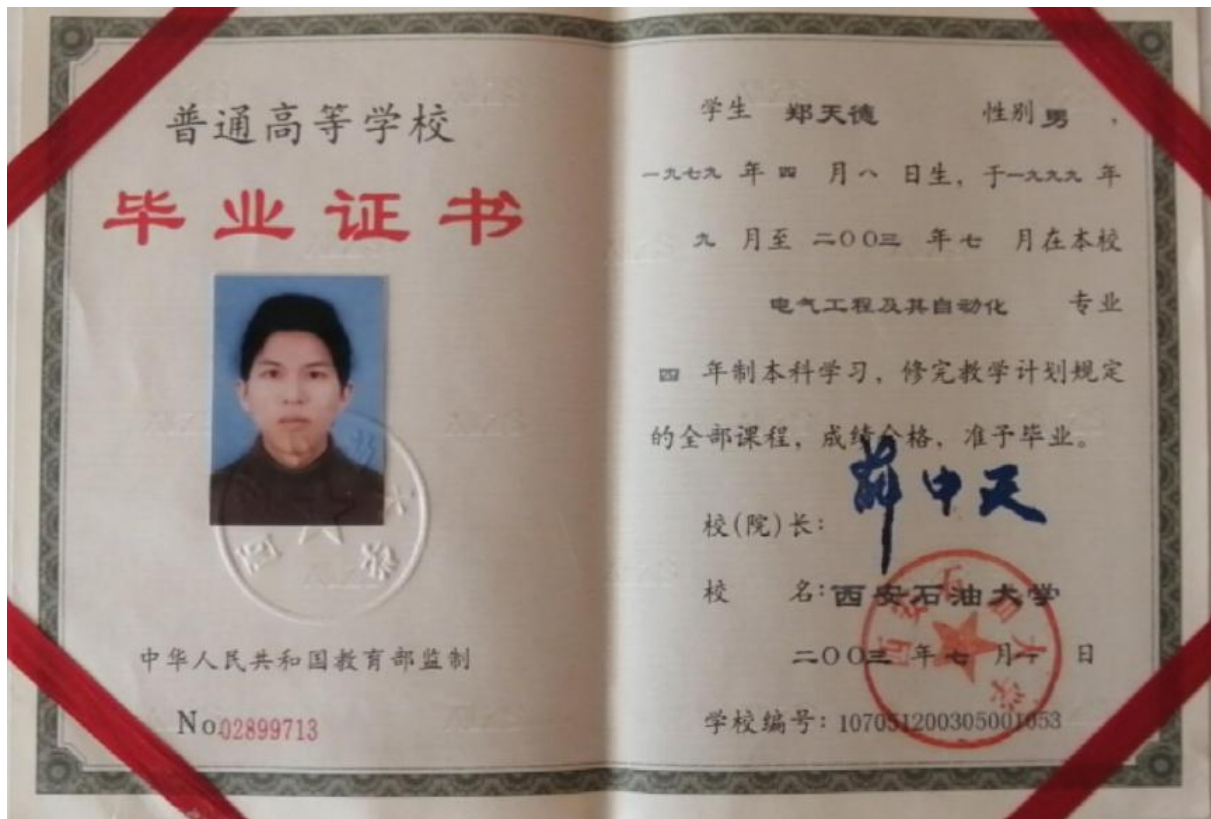 普通高等学校
毕业证书
中华人民共和国教育部监制
No.02899713
学生 郑天德 性别男，
一九七九 年 四 月 八 日生，于一九九九 年
九 月至 二〇〇三 年 七 月在本校
电气工程及其自动化 专业
四 年制本科学习，修完教学计划规定
的全部课程，成绩合格，准予毕业。
校(院)长：
校 名：西安石油大学
二〇〇三 年 七 月 一 日
学校编号：107051200305001053
西安石油大学